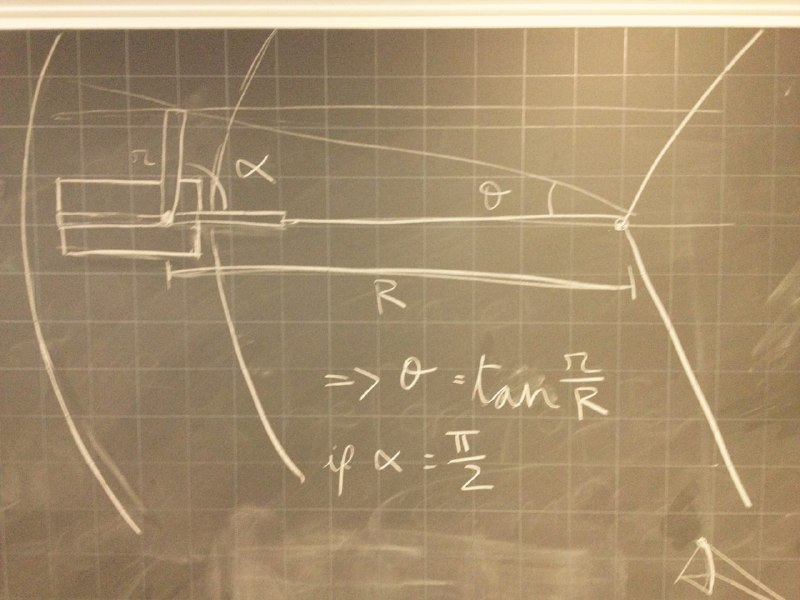 r
α
θ
R
=> θ = tan r/R
if α = π/2